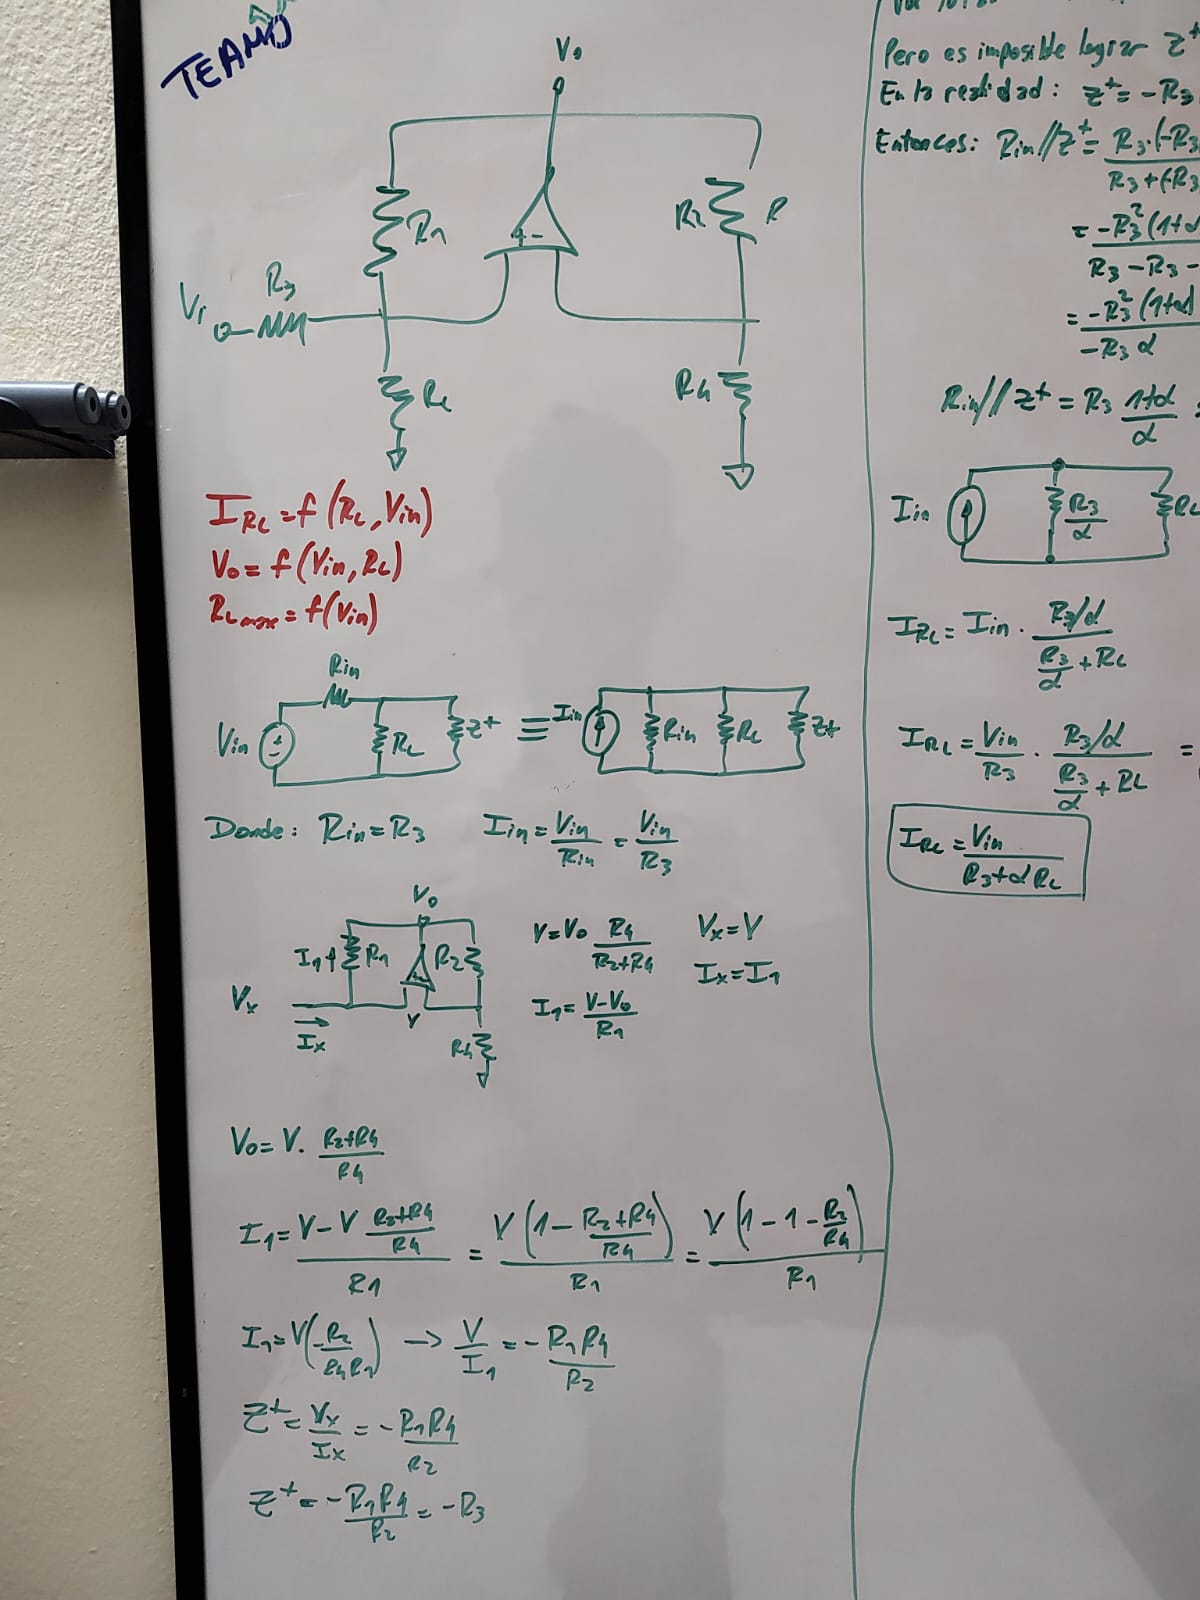 TE AMO
Vo
R1
R2
R
+ -
Vi
R3
RL
R4
IRL = f (RL, Vin)
Vo = f (Vin, RL)
RLmax = f(Vin)
Rin
Vin
RL
Z+
≡
Iin
Rin
RL
Z+
Donde: Rin = R3
Iin = Vin/Rin = Vin/R3
Vo
I1
R1
R2
Vx
V
Ix
R4
V = Vo R4/(R2+R4)
Vx = V
Ix = I1
I1 = (V-Vo)/R1
Vo = V. (R2+R4)/R4
I1 = (V - V (R2+R4)/R4)/R1 = V(1 - (R2+R4)/R4)/R1 = V(1-1-R2/R4)/R1
I1 = V(-R2/(R4R1)) → V/I1 = - R1R4/R2
Z+ = Vx/Ix = - R1R4/R2
Z+ = - R1R4/R2 = -R3
Pero es imposible lograr Z+
En la realidad: Z+ = -R3
Entonces: Rin//Z+ = R3.(-R3
R3+(-R3
= -R3²(1+α
R3-R3-
= -R3²(1+α)
-R3α
Rin//Z+ = R3 (1+α)/α
Iin
R3/α
RL
IRL = Iin . (R3/α)/(R3/α + RL)
IRL = Vin/R3 . (R3/α)/(R3/α + RL) =
IRL = Vin/(R3+αRL)